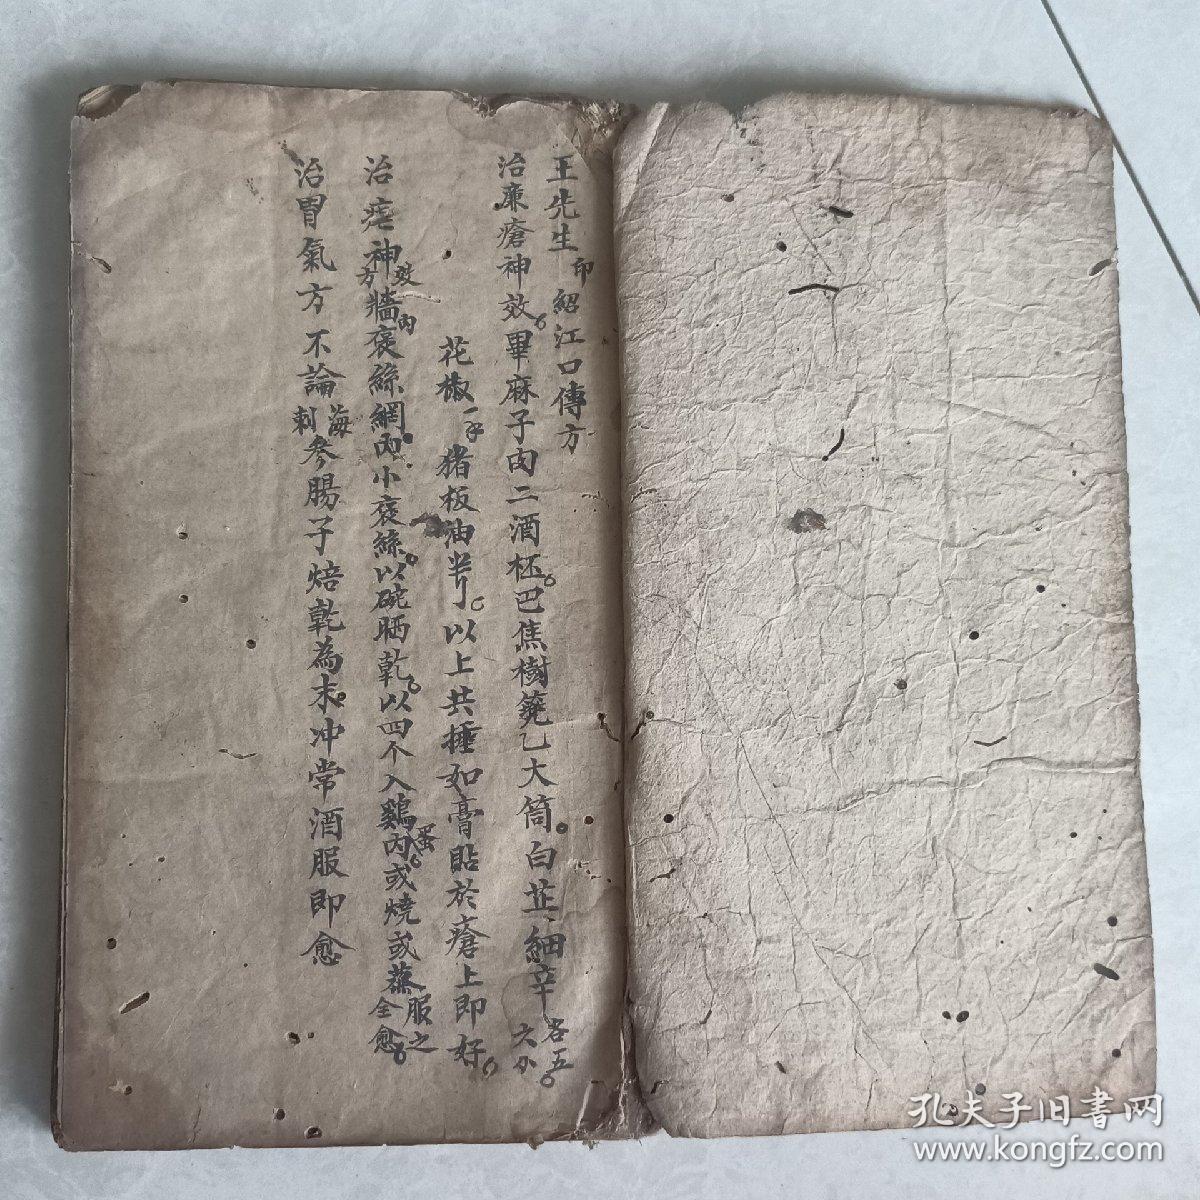 王先生印紹江口傳方
治廉瘡神效畢麻子肉二酒杯巴焦樹蔸乙大筒白芷細辛各五
花椒 猪板油半斤以上共捶如膏貼於瘡上即好
治瘧神效方牆內窠絲網內小窠絲以碗晒乾以四个入鷄蛋內或燒或蒸服之全愈
治胃氣方不論海刺參腸子焙乾為末冲常酒服即愈
孔夫子旧書网
www.kongfz.com